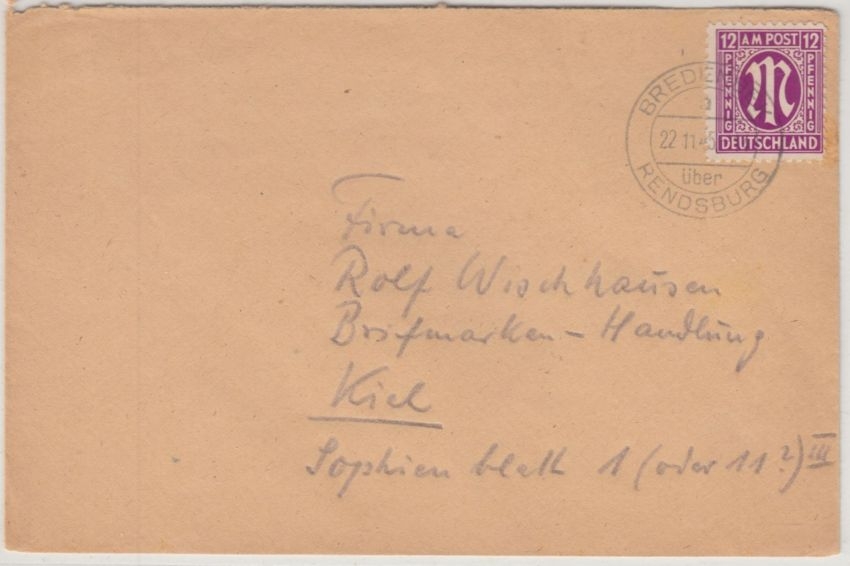 12 AM POST 12
PFENNIG
PFENNIG
M
DEUTSCHLAND
22.11.45
über
RENDSBURG
Firma
Rolf Wischhausen
Briefmarken-Handlung
Kiel
Sophienblatt 1 (oder 11?) III